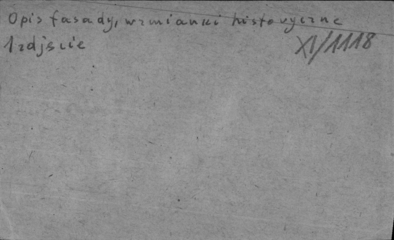 Opis fasady, wzmianki historyczne
1 zdjęcie
XI/1118